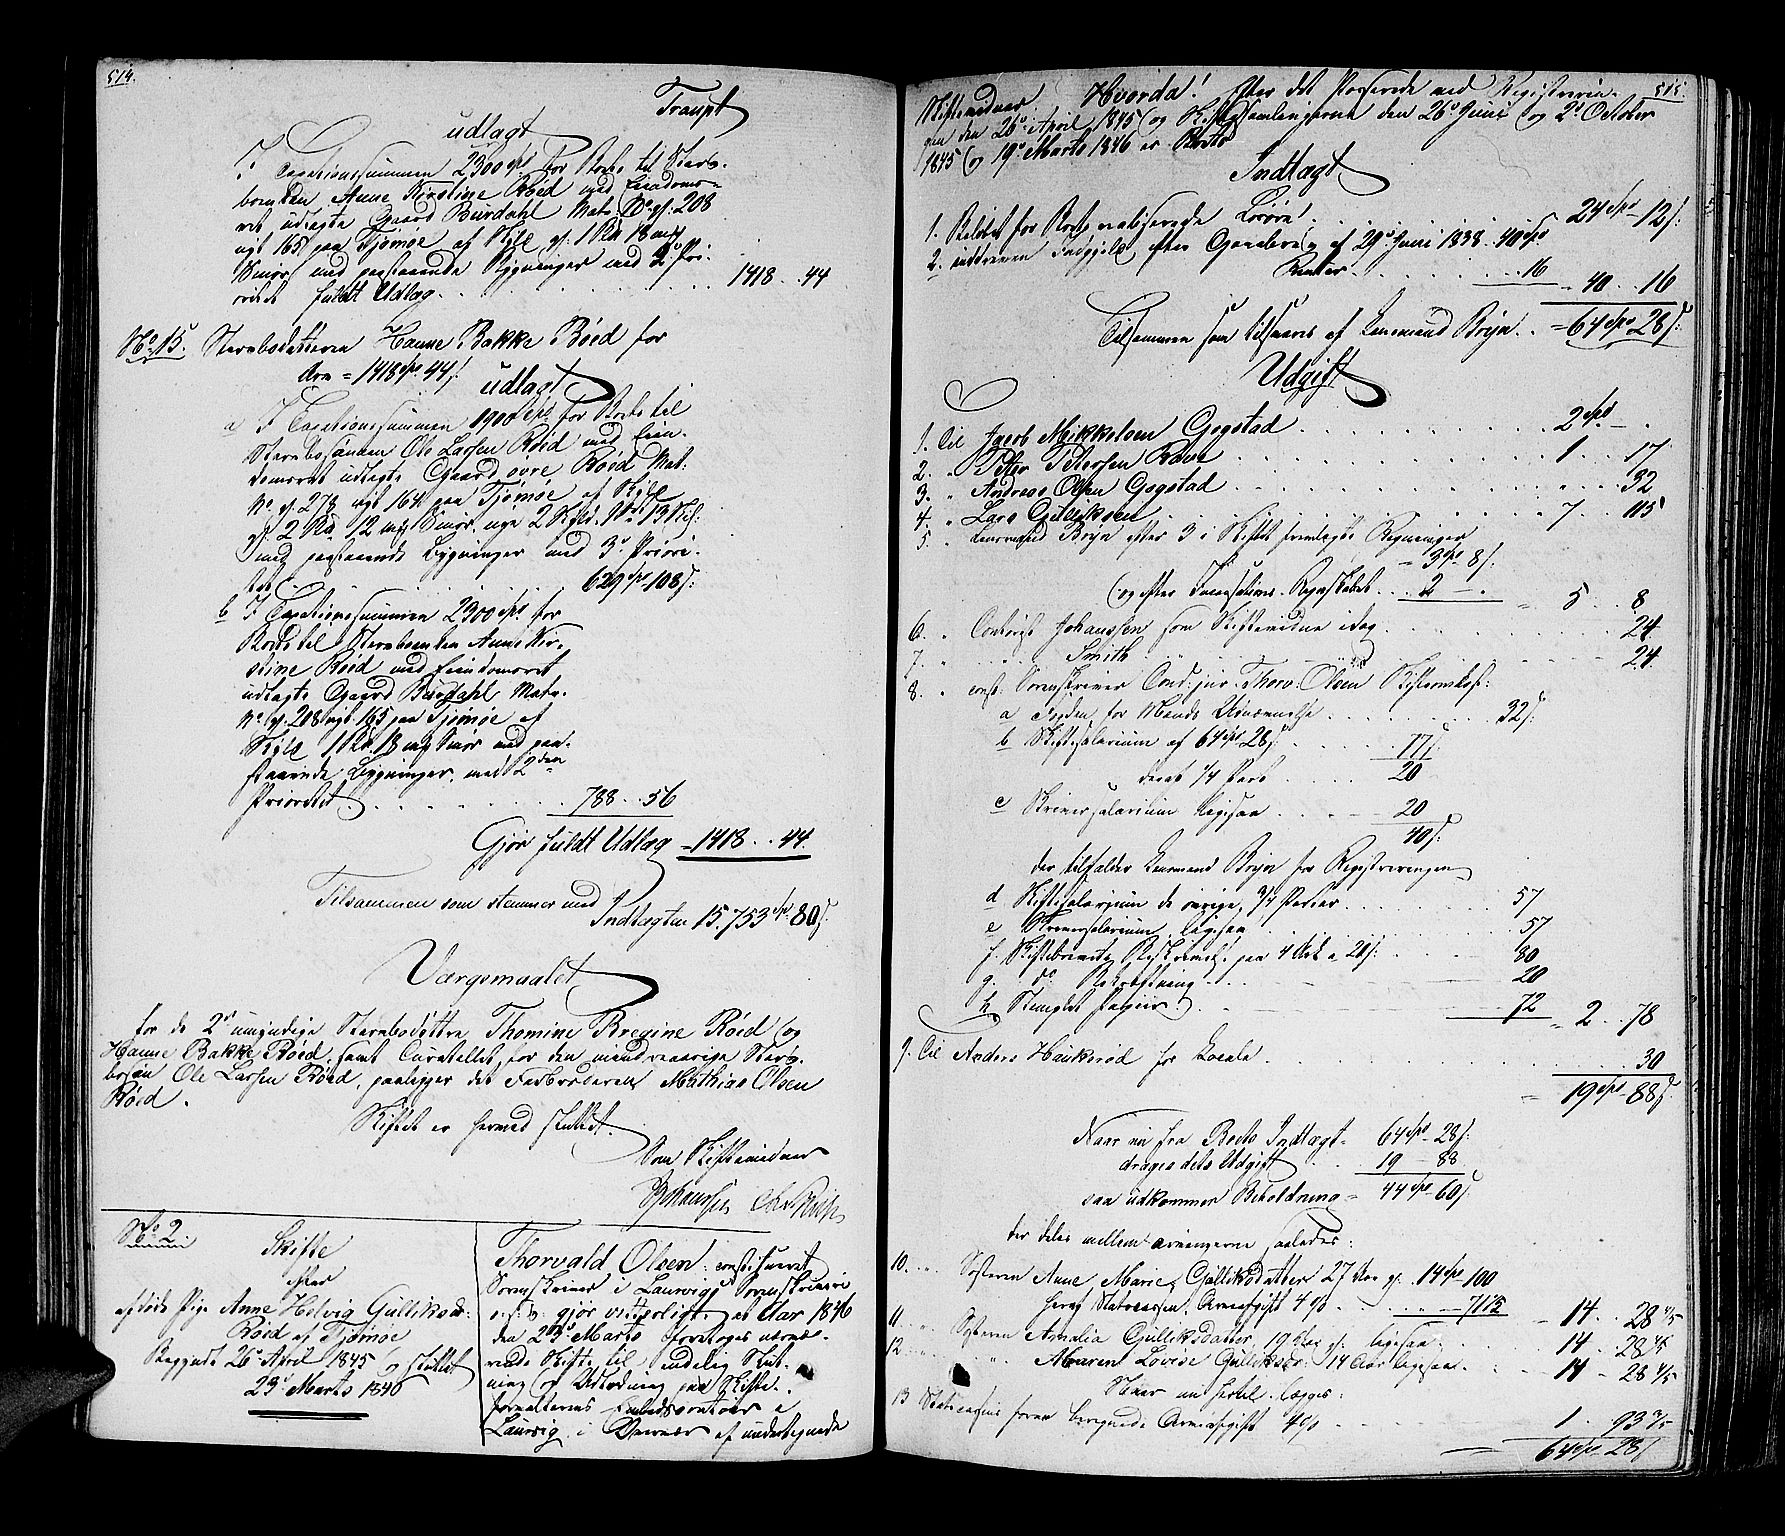 514.
Transpt
udlagt
I Taxationssummen 2300 Spd for Boets til Sterb-
boenken Anne Kirstine Röed med Eiendoms-
ret udlagte Gaard Burdahl Matr. No gl. 208
nyt 165 paa Tjömöe af Skyld gl. 1 Rd 18 mk
Smör med paastaaende Bygninger med 2den Pri-
oritet fuldt Udlæg . . . 1418 . . 44
No 15. Sterbodatteren Hanne Bakke Röed for
Arv = 1418 Spd 44 s.
udlagt
a I Taxationssummen 1900 Spd for Boets til
Sterbosönnen Ole Larsen Röed med Eien-
domsret udlagte Gaard övre Röed Mat:
No gl. 278 nyt 164 paa Tjömöe af Skyld
gl. 2 Rd. 12 mk Smör, nye 2 Skyld. 1 ort 13 Skil:
med paastaaende Bygninger med 3die Priori-
tet . . . 629 Spd 108 s.
b I Taxationssummen 2300 Spd for
Boets til Sterboenken Anne Kir-
stine Röed med Eiendomsret
udlagte Gaard Burdahl Matr.
No gl. 208 nyt 165 paa Tjömöe af
Skyld 1 Rd. 18 mk Smör med paa-
staaende Bygninger, med 2den
Prioritet . . . 788 . . 56
Gjör fuldt Udlæg = 1418 . . 44.
Tilsammen som stemmer med
Indtægten 15.753 Spd 80 s.
Værgemaalet
for de 2de umyndige Sterbodöttre Thomine Bregine Röed og
Hanne Bakke Röed, samt Curatellet for den mindreaarige Sterb-
bosön Ole Larsen Röed, paaligger det Farbroderen Mathias Olsen
Röed.
Skiftet er hermed sluttet.
Som Skiftevidner
Johanssen
No 2
Skifte
efter
afdöde Pige Anne Helvig Gulliksdr
Röed af Tjömöe
Begyndt 26de April 1845 og sluttet
23de Marts 1846
Thorvald Olsen, constitueret
Sorenskriver i Laurvigs Sorenskriveri
gjör vitterligt, at Aar 1846
den 23de Marts foretoges nærvæ-
rende Skifte til endelig Slut-
ning og Udlodning paa Skifte-
forvalterens Embedscontoir i
Laurvig, i Overvær af undertegnede
515.
Skiftevidner. Hvorda! Efter det Passerede ved Registrerin-
gen den 26de April 1845 og Skiftesamlingerne den 26de Juni og 2den October
1845 og 19de Marts 1846 er Boets
Indtægt
1. Belöbet for Boets realiserede Lösöre . . . 24 Spd 12 s.
2. inddreven Indgjeld efter Gjældsbrev af 29de Juni 1838. 40 Spd
Renter . . . 16 = 40 . . 16
Tilsammen som tilsvares af Lensmand Bryn . = 64 Spd 28 s.
Udgift
1. Til Jacob Mikkelsen Gogstad . . . 2 Spd .
2. " Peder Petersen Rave . . . 1 . . 17
3. " Andreas Olsen Gogstad . . . 32
4. " Lars Gulliksen . . . 7 . . 115
5. " Lensmand Bryn efter 3 i Skiftet fremlagte Regninger
= 3 Spd 8 s.
og efter Incassations Regnskabet . . 2 - . = 5 . . 8
6. " Contorist Johanssen som Skiftevidne idag . . . 24
7. " " Smith " . . . 24
8. " const. Sorenskriver Cand. jur. Thorv. Olsen Skifteomkost:
a Foged for Mænds Udnævnelse . . . 32 s.
b Skiftesalarium af 64 Spd 28 s. . . 77 s
deraf 1/4 Part . . . 20
c Skriversalarium ligesaa . . . 20
40 s.
der tilfalder Lensmand Bryn for Registreringen
d Skiftesalarium de övrige 3/4 Parter . . . 57
e Skriversalarium ligesaa . . . 57
f. Skiftebrevets Beskrivelse paa 4 Ark a 20 s. . . 80
g. do Bekræftning . . . 20
h Stemplet Papiir . . . 72 = 2 . . 78
9. Til Anders Haukeröd for Locale . . . 30
= 19 Spd 88 s.
Naar nu fra Boets Indtægt = 64 Spd 28 s.
drages dets Udgift . . 19 - 88
saa udkommer Beholdning = 44 Spd 60 s.
der deles mellem Arvingerne saaledes:
10. " Sösteren Anne Marie Gulliksdatter 27 Aar gl. 14 Spd 100
heraf Statscassens Arveafgift 4 % . . . 71 1/5 = 14 . . 28 4/5
11 " Sösteren Amalia Gulliksdatter 19 Aar gl. ligesaa . . . 14 . 28 4/5
12 " " Maren Lovise Gulliksdr: 14 Aar ligesaa . . . 14 - 28 4/5
Naar nu hertil lægges:
13 Statscassens foran beregnede Arveafgift 4 % . . . 1 . 93 3/5
= 64 Spd 28 s